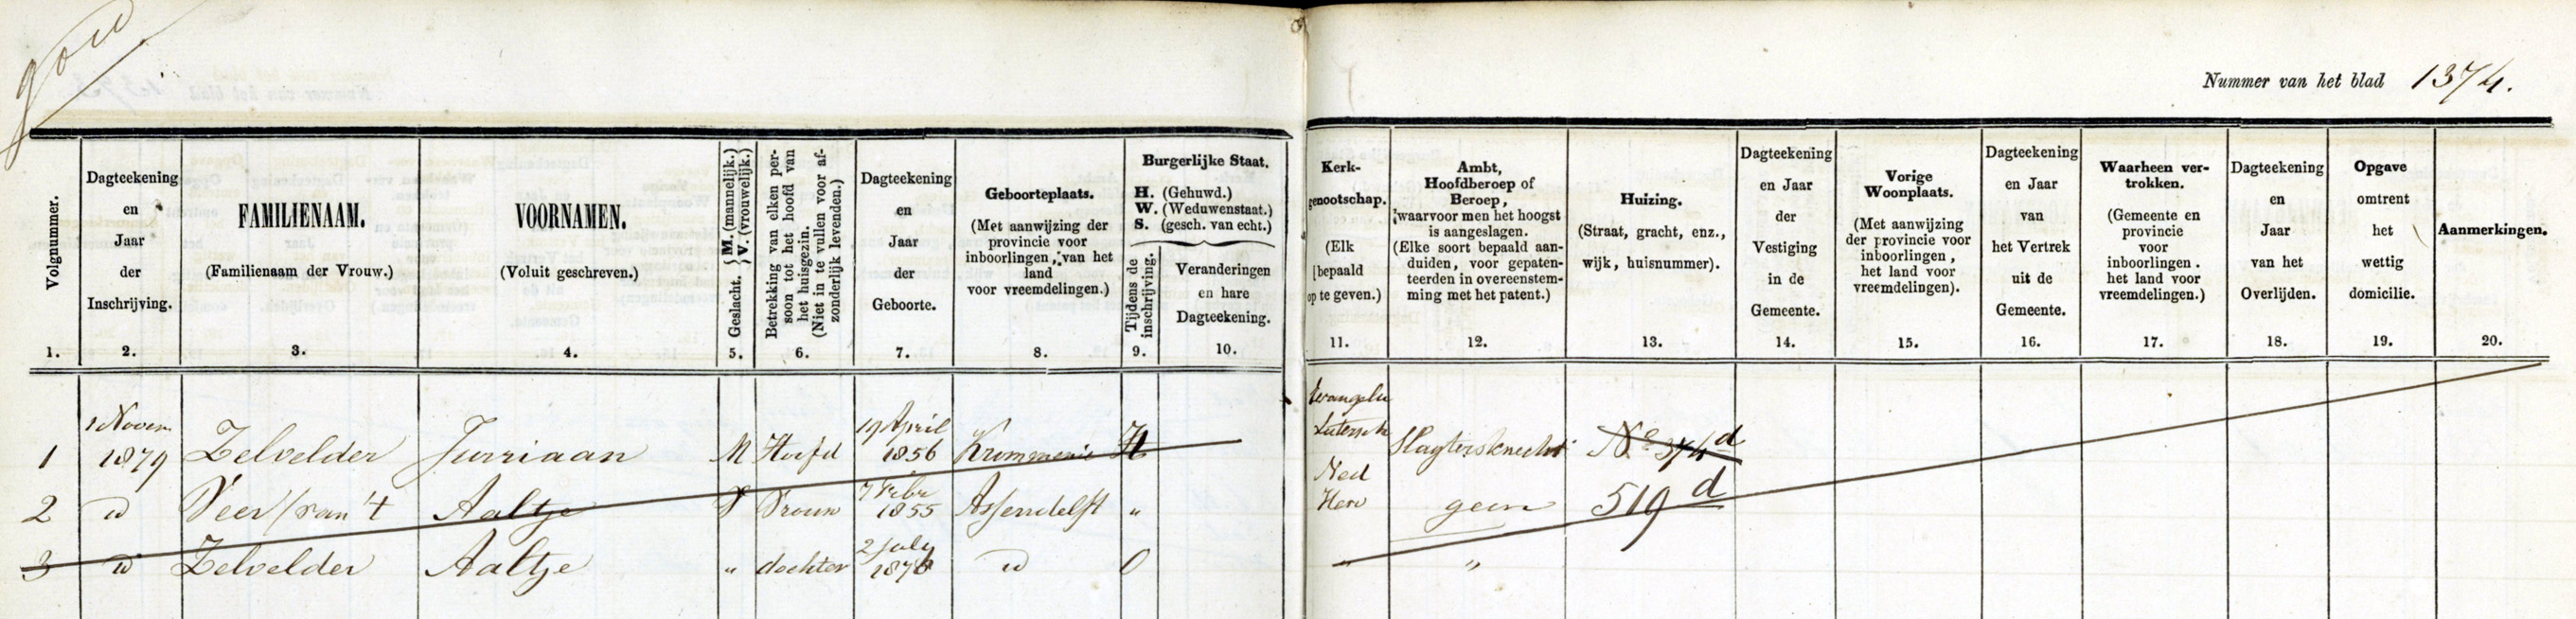 goed
Nummer van het blad 1374.
Volgnummer.
1.
Dagteekening
en
Jaar
der
Inschrijving.
2.
FAMILIENAAM.
(Familienaam der Vrouw.)
3.
VOORNAMEN.
(Voluit geschreven.)
4.
Geslacht. { M. (mannelijk.) V. (vrouwelijk.)
5.
Betrekking van elken per-
soon tot het hoofd van
het huisgezin.
(Niet in te vullen voor af-
zonderlijk levenden.)
6.
Dagteekening
en
Jaar
der
Geboorte.
7.
Geboorteplaats.
(Met aanwijzing der
provincie voor
inboorlingen, van het
land
voor vreemdelingen.)
8.
Burgerlijke Staat.
H. (Gehuwd.)
W. (Weduwenstaat.)
S. (gesch. van echt.)
Tijdens de
inschrijving.
9.
Veranderingen
en hare
Dagteekening.
10.
Kerk-
genootschap.
(Elk
bepaald
op te geven.)
11.
Ambt,
Hoofdberoep of
Beroep,
waarvoor men het hoogst
is aangeslagen.
(Elke soort bepaald aan-
duiden, voor gepaten-
teerden in overeenstem-
ming met het patent.)
12.
Huizing.
(Straat, gracht, enz.,
wijk, huisnummer).
13.
Dagteekening
en Jaar
der
Vestiging
in de
Gemeente.
14.
Vorige
Woonplaats.
(Met aanwijzing
der provincie voor
inboorlingen,
het land voor
vreemdelingen).
15.
Dagteekening
en Jaar
van
het Vertrek
uit de
Gemeente.
16.
Waarheen ver-
trokken.
(Gemeente en
provincie
voor
inboorlingen.
het land voor
vreemdelingen.)
17.
Dagteekening
en
Jaar
van het
Overlijden.
18.
Opgave
omtrent
het
wettig
domicilie.
19.
Aanmerkingen.
20.
1 1 Novem 1879 Zelvelder Jurriaan M Hoofd 19 April 1856 Krommenie H Evangelie Lutersch Slagtersknecht No 374 d
2 id Veer (van 't Aaltje V Vrouw 7 Febr 1855 Assendelft " Ned Herv geen 519 d
3 id Zelvelder Aaltje " dochter 2 july 1878 id O " "